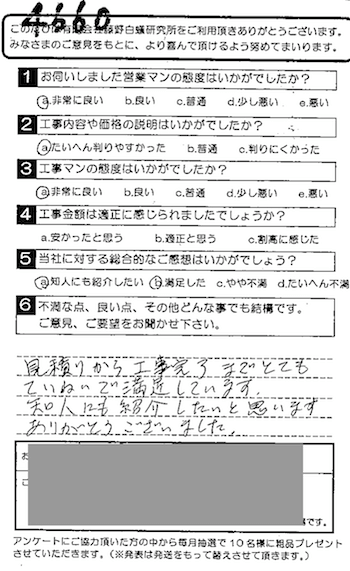 4660
このたびは有限会社藤野白蟻研究所をご利用頂きありがとうございます。
みなさまのご意見をもとに、より喜んで頂けるよう努めてまいります。
1 お伺いしました営業マンの態度はいかがでしたか?
a.非常に良い b.良い c.普通 d.少し悪い e.悪い
2 工事内容や価格の説明はいかがでしたか?
a.たいへん判りやすかった b.普通 c.判りにくかった
3 工事マンの態度はいかがでしたか?
a.非常に良い b.良い c.普通 d.少し悪い e.悪い
4 工事金額は適正に感じられましたでしょうか?
a.安かったと思う b.適正と思う c.割高に感じた
5 当社に対する総合的なご感想はいかがでしょう?
a.知人にも紹介したい b.満足した c.やや不満 d.たいへん不満
6 不満な点、良い点、その他どんな事でも結構です。
ご意見、ご要望をお聞かせ下さい。
見積りから工事完了までとても
ていねいで満足しています。
知人にも紹介したいと思います
ありがとうございました。
お
こ
です。
アンケートにご協力頂いた方の中から毎月抽選で10名様に粗品プレゼント
させていただきます。(※発表は発送をもって替えさせて頂きます。)